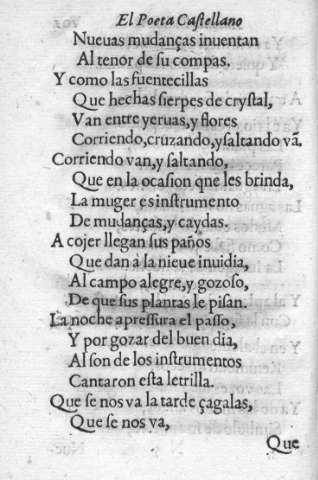 El Poeta Castellano
Nueuas mudanças inuentan
Al tenor de ſu compas.
Y como las fuentecillas
Que hechas ſierpes de cryſtal,
Van entre yeruas,y flores
Corriendo,cruzando,yſaltando vã.
Corriendo van,y ſaltando,
Que en la ocaſion qne les brinda,
La muger es inſtrumento
De mudanças,y caydas.
A cojer llegan ſus paños
Que dan à la nieue inuidia,
Al campo alegre,y gozoſo,
De que ſus plantas le piſan.
La noche apreſſura el paſſo,
Y por gozar del buen dia,
Al ſon de los inſtrumentos
Cantaron eſta letrilla.
Que ſe nos va la tarde çagalas,
Que ſe nos va,
Que